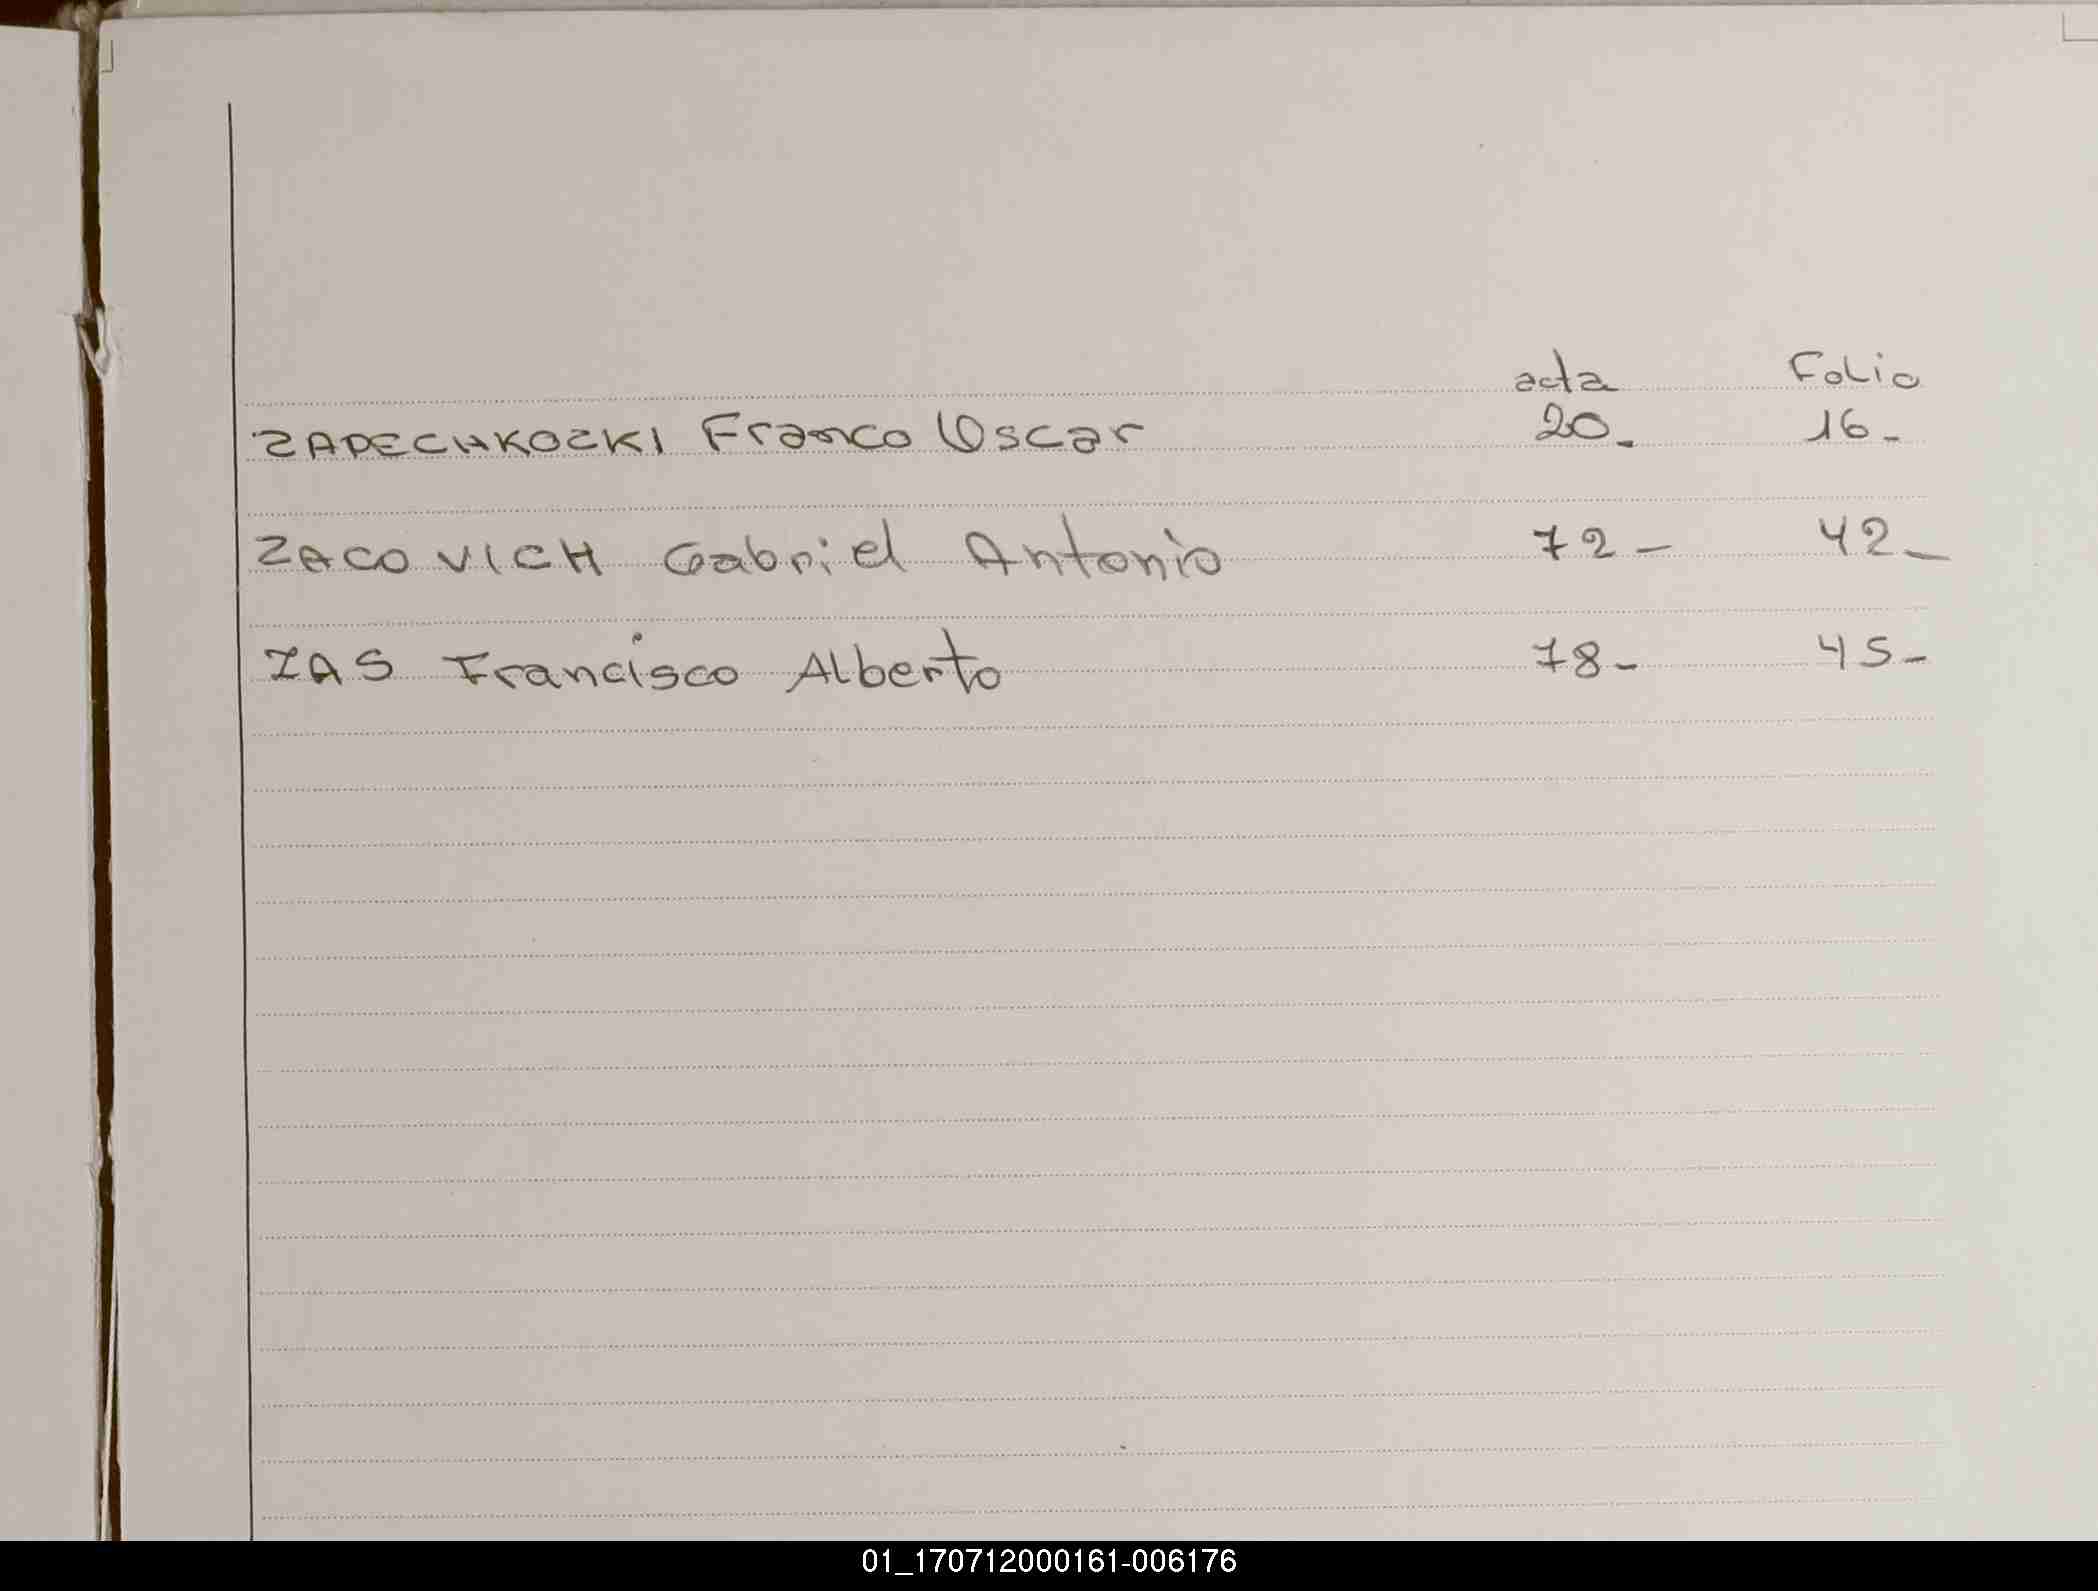 acta Folio
ZAPECHKOZKI Franco Oscar 20. 16-
ZACOVICH Gabriel Antonio 72- 42-
ZAS Francisco Alberto 78- 45-
01_170712000161-006176